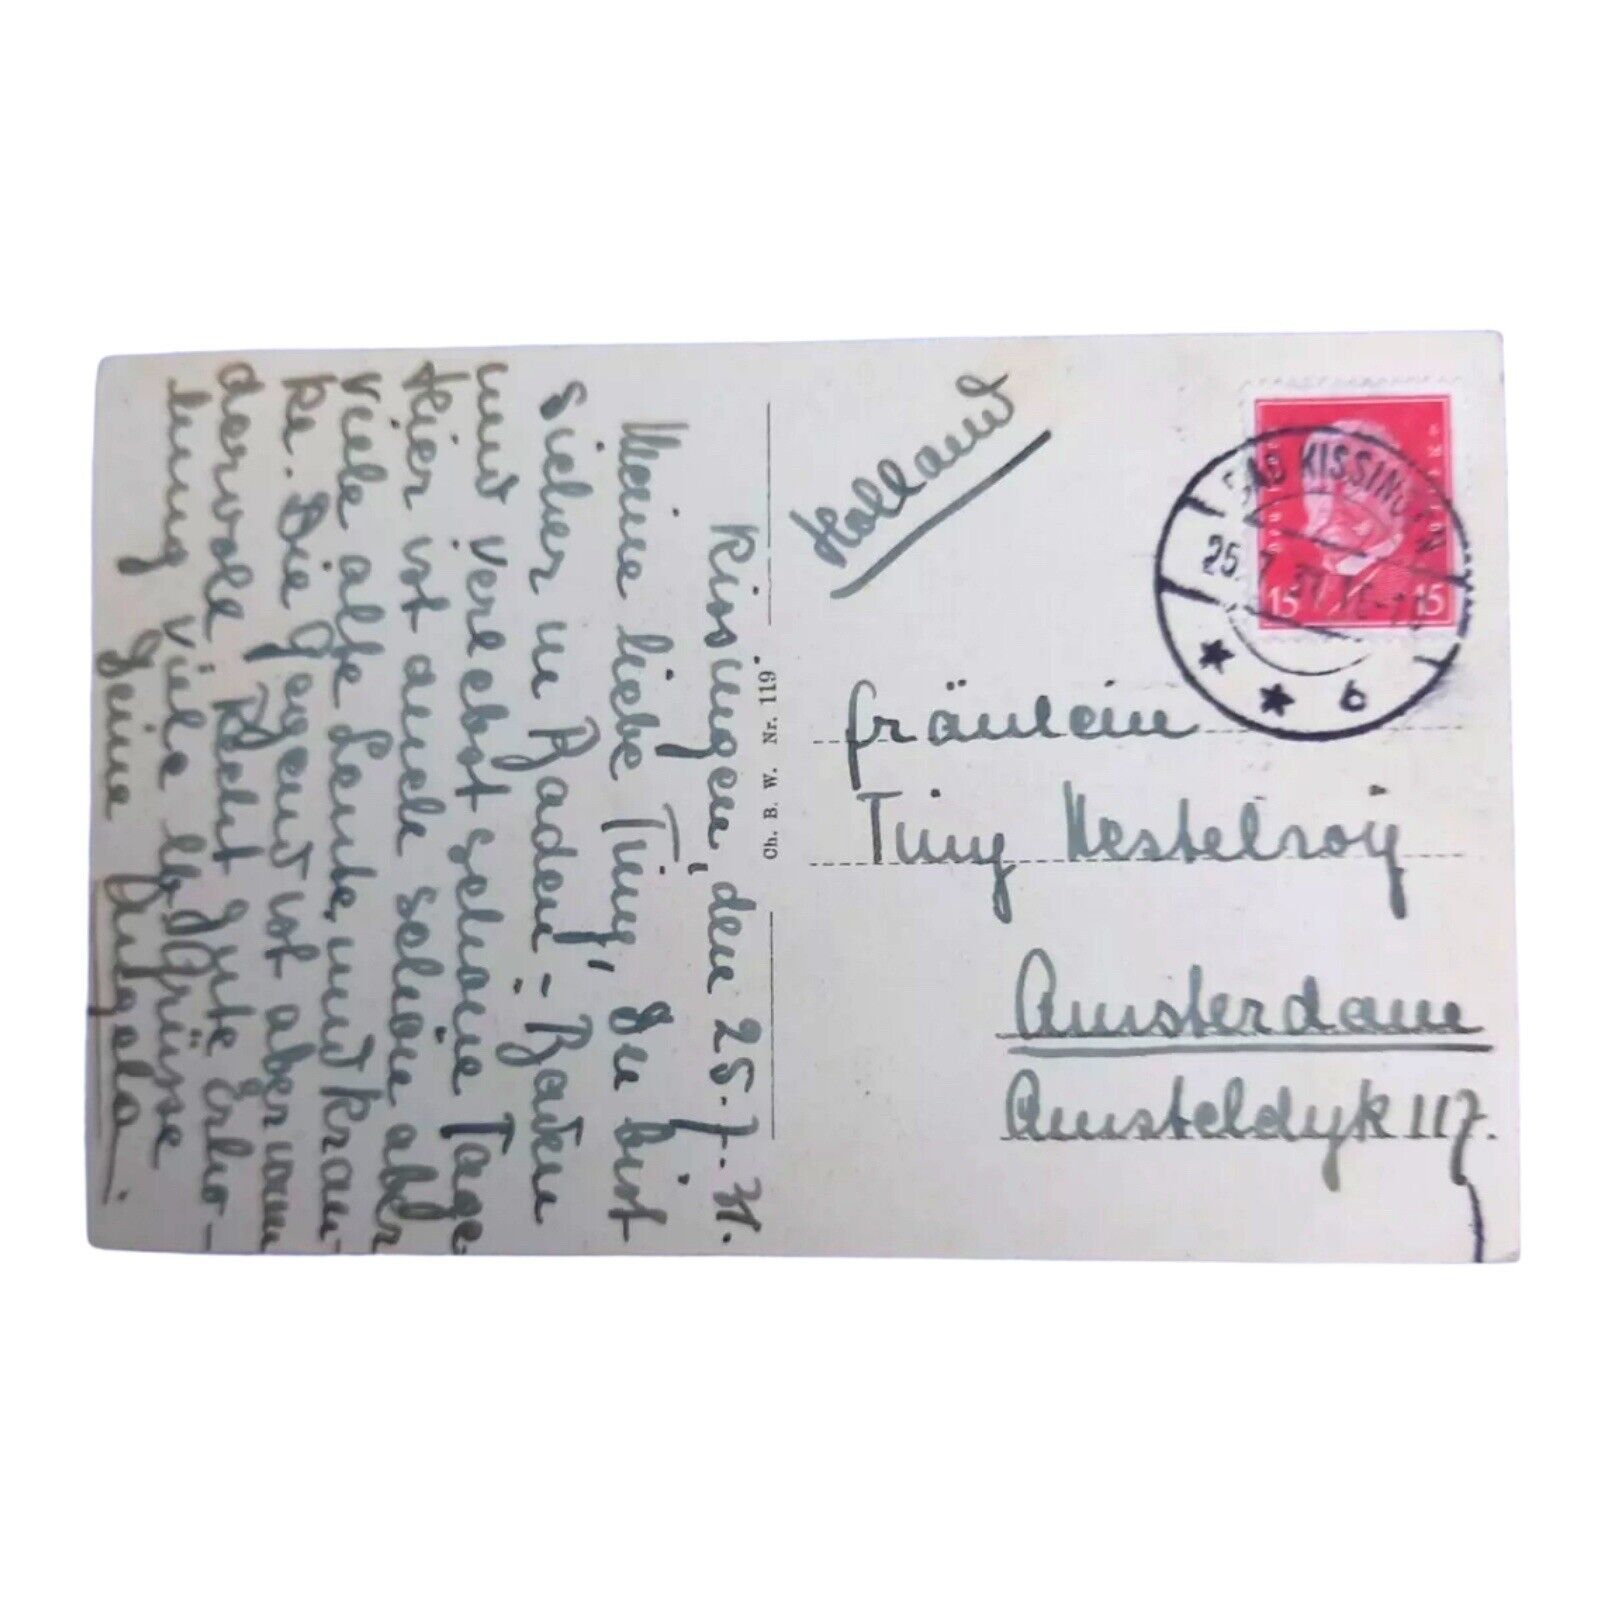 Kissingen, den 25-7-31.
Meine liebe Tiny, Du bist
sicher in Baden-Baden
und verlebst schöne Tage.
Hier ist auch schön aber
viele alte Leute, und Kran-
ke. Die Gegend ist aber wun-
dervoll. Recht gute Erho-
lung viele lb. Grüsse
Deine Angela.
Ch. B. W. Nr. 119.
Holland
BAD KISSINGEN
25. 7. 31
* * b
15 15
Fräulein
Tiny
Amsterdam
Amsteldyk 117.